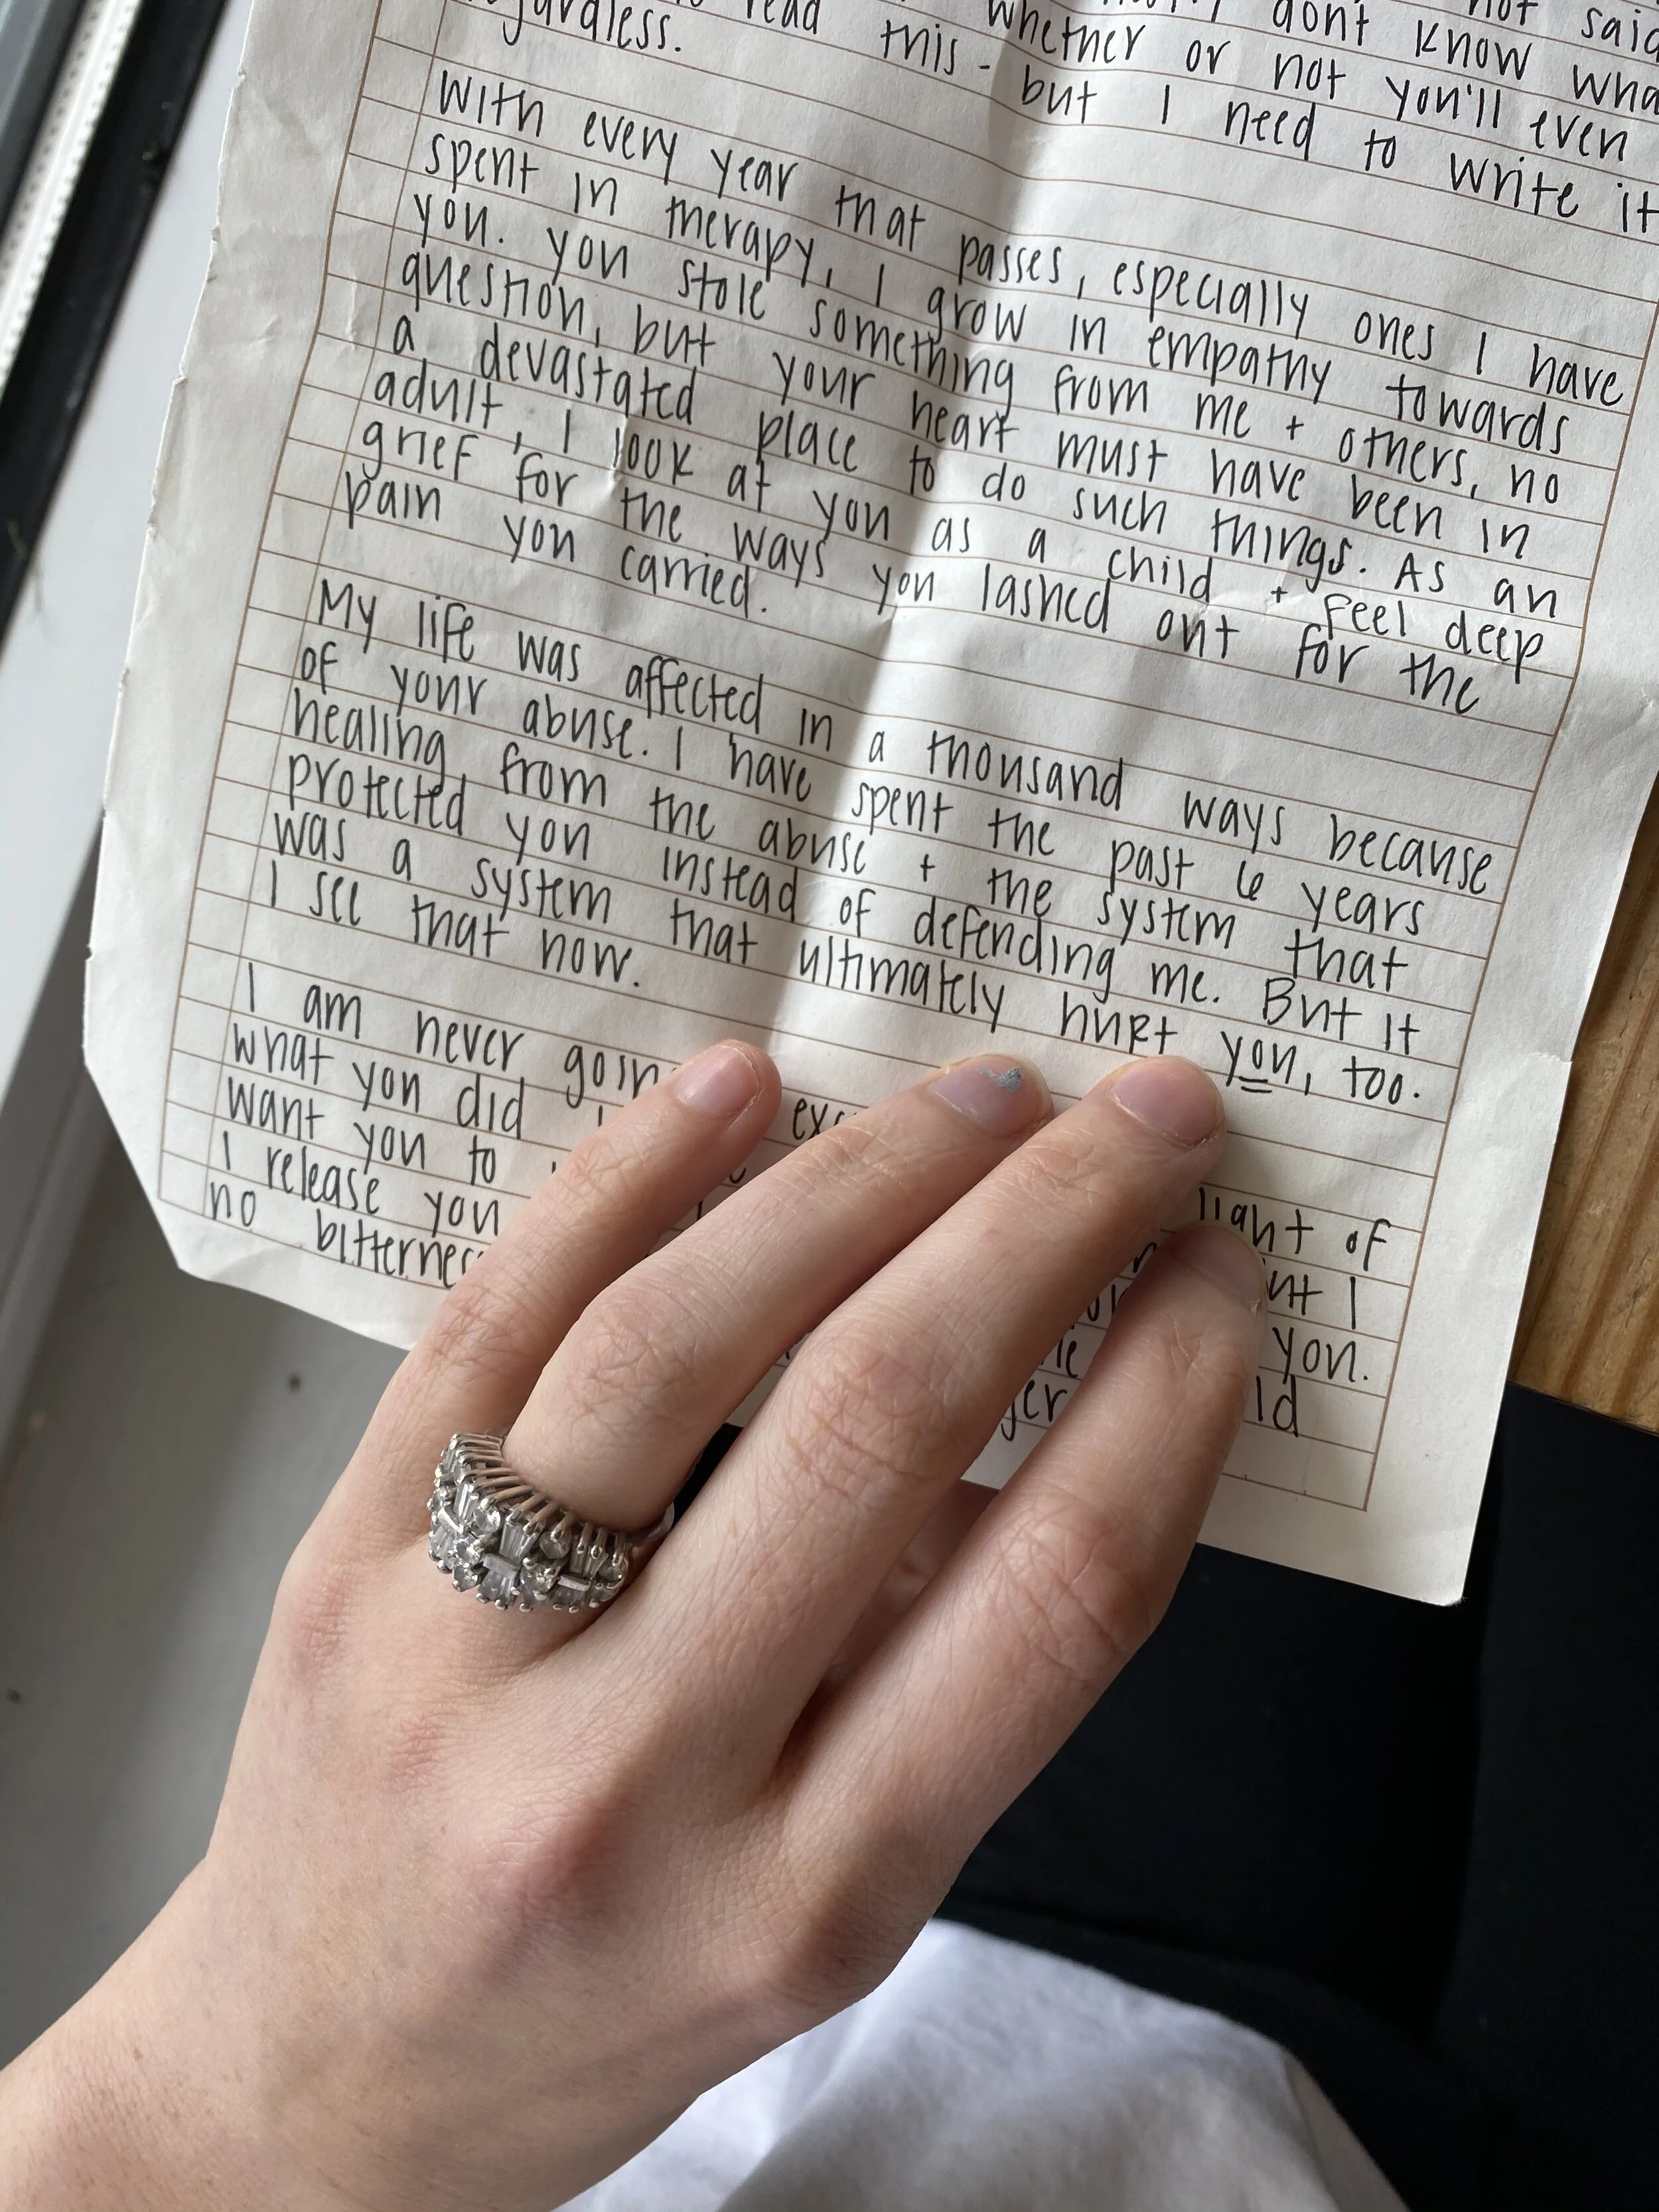 not said
don't know
whether or not you'll even
read this - but I need to write it
regardless.
With every year that passes, especially ones I have
spent in therapy, I grow in empathy towards
you. you stole something from me + others, no
question, but your heart must have been in
a devastated place to do such things. As an
adult, I look at you as a child + feel deep
grief for the ways you lashed out for the
pain you carried.
My life was affected in a thousand ways because
of your abuse. I have spent the past 6 years
healing from the abuse + the system that
protected you instead of defending me. But it
was a system that ultimately hurt you, too.
I see that now.
I am never light of
what you did I
want you to you.
I release you
no